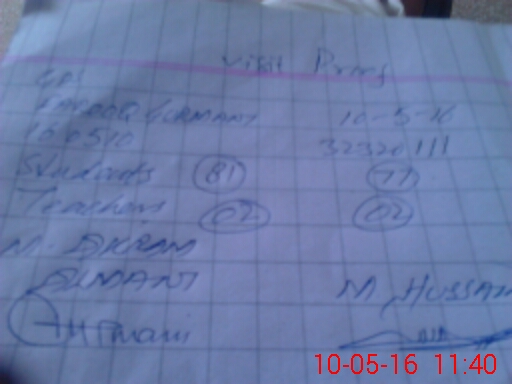 Visit Proof
GPS
FAROOQ GURMANI 10-5-16
32320111
Students 81 77
Teachers 02 02
M. AKRAM
GURMANI M. HUSSAIN
10-05-16 11:40